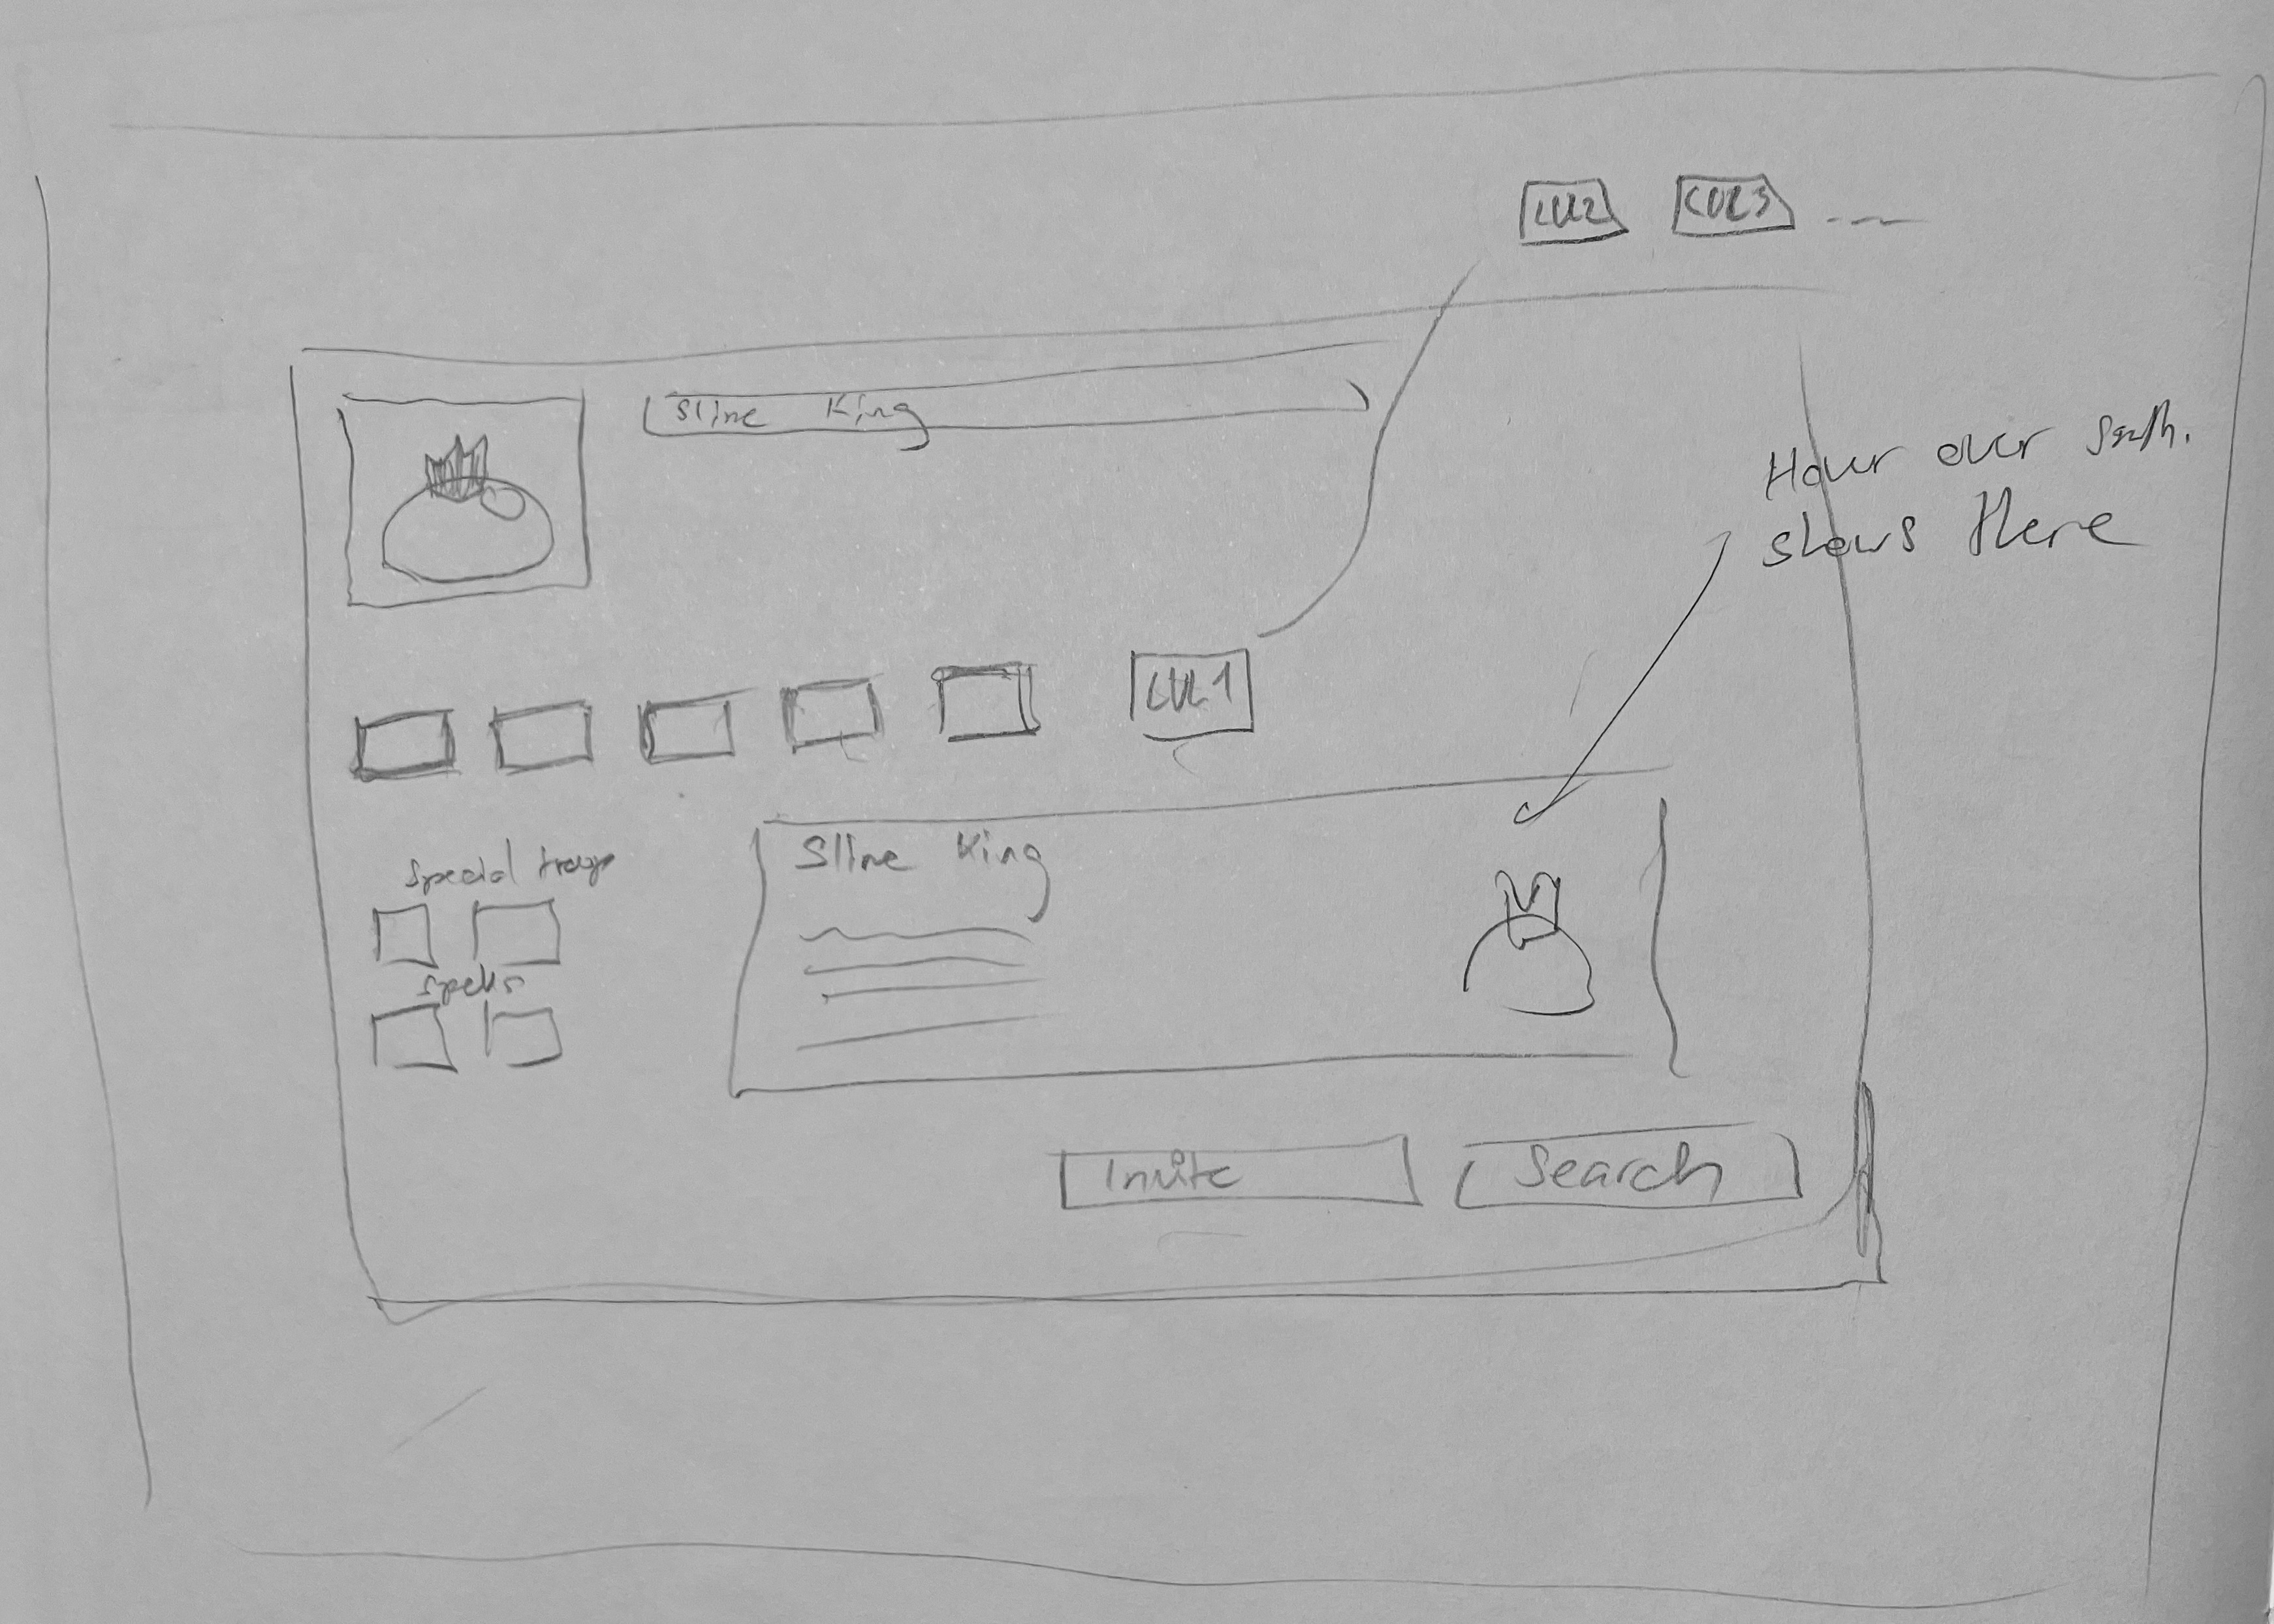 LVL2 LVL3
Slime King
Hover over smth.
shows there
LVL1
Special troop
Slime King
Spells
Invite
Search